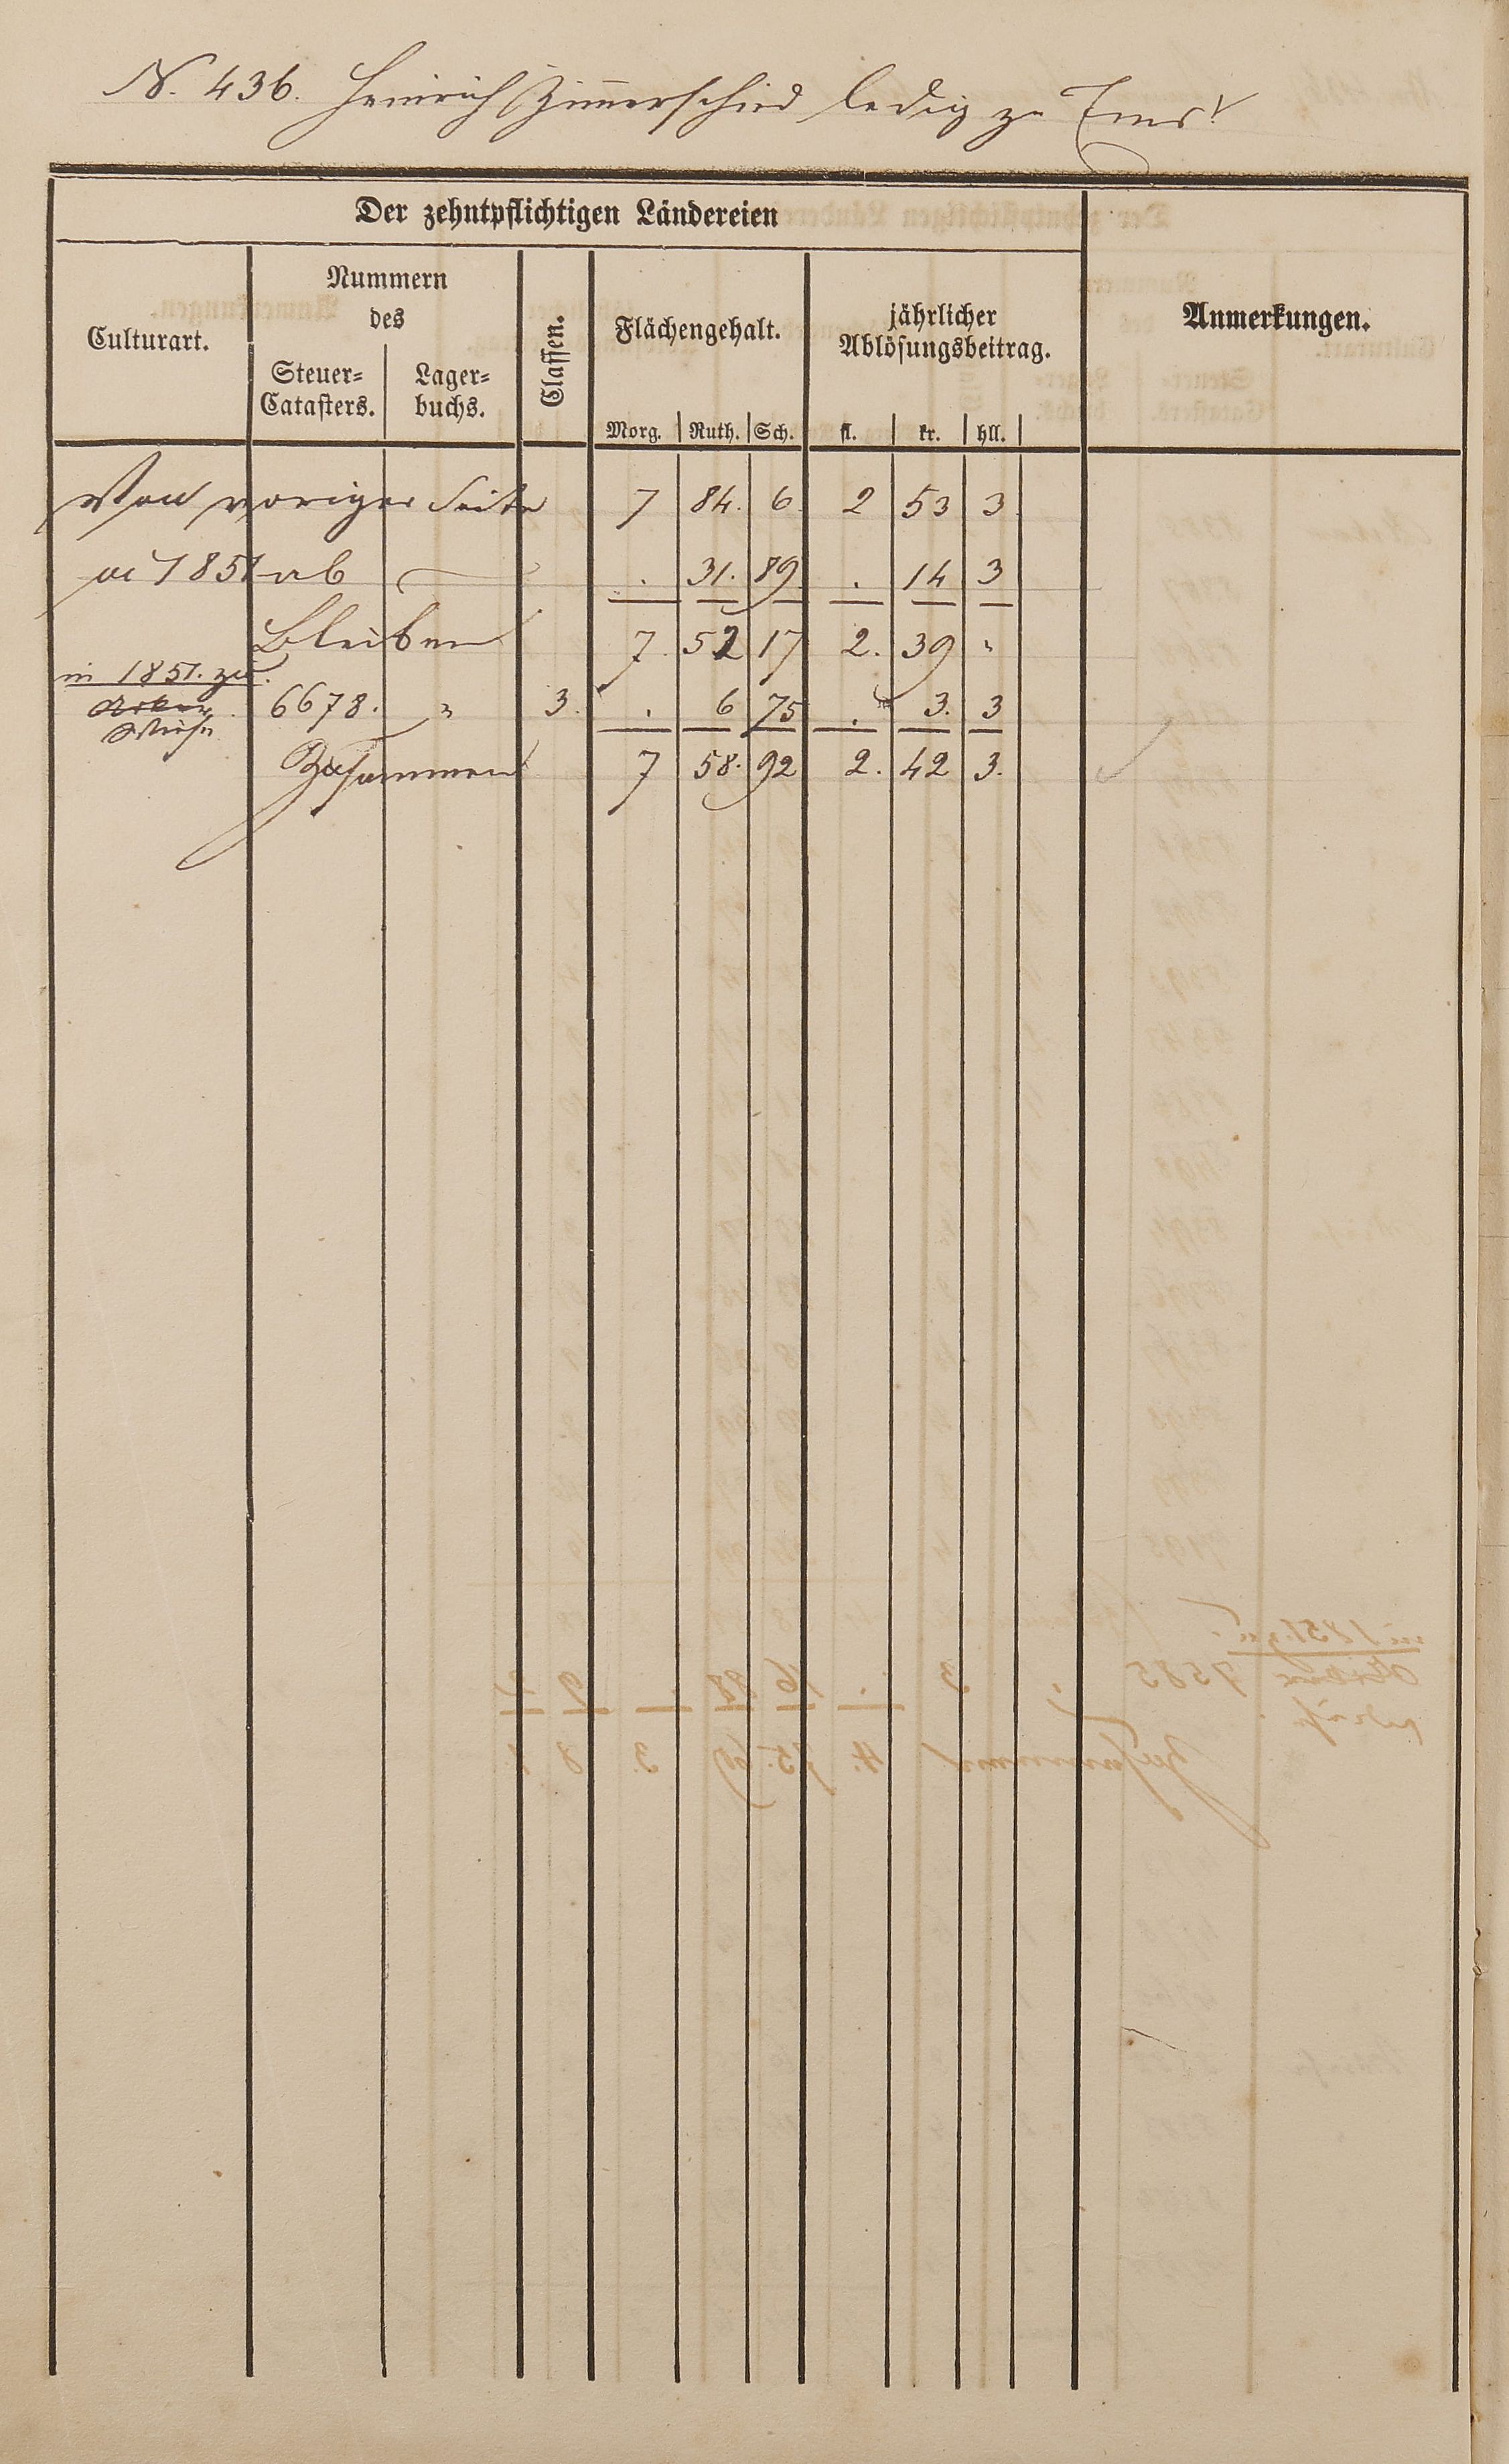 N. 436. Heinrich Zimerschied ledig zu Ems
Der zehntpflichtigen Ländereien
Culturart.
Nummern
des
Steuer=
Catasters.
Lager=
buchs.
Classen.
Flächengehalt.
Morg. Ruth. Sch.
jährlicher
Ablösungsbeitrag.
fl. kr. hll.
Anmerkungen.
Von voriger Seite 7 84. 6 2 53 3
in 1851 ab . 31. 89 . 14 3
Bleiben 7. 52 17 2. 39 "
in 1851. zu.
Acker 6678. " 3. . 6 75 . 3. 3
Wiese
Zusammen 7 58. 92 2. 42 3.